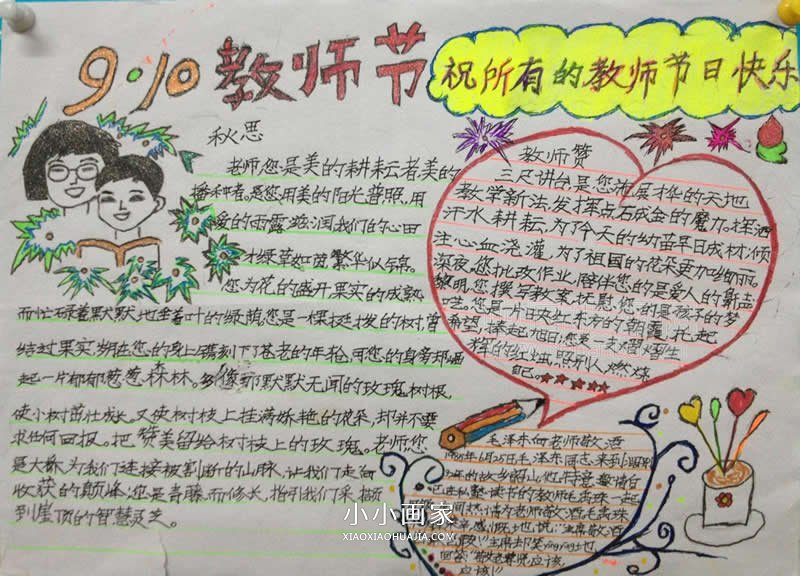 9·10 教师节
祝所有的教师节日快乐
秋思
老师您是美的耕耘者,美的
播种者。是您用美的阳光普照,用
美的雨露滋润,我们的心田
才绿草如茵,繁华似锦。
您为花的盛开,果实的成熟
而忙碌着,默默地垂着叶的绿荫!您是一棵挺拔的树,曾
结过果实,
您的身上镌刻下了苍老的年轮,
您的身旁却崛
起一片郁郁葱葱森林。
像那默默无闻的玫瑰树根,
使小树茁壮成长,又使树枝上挂满娇艳的花朵,却并不要
求任何回报。把赞美留给树枝上的玫瑰。老师您
是大桥,为我们连接被割断的山脉,让我们走向
收获的巅峰;您是青藤,
而修长,指引我们采撷
到崖顶的智慧灵芝。
教师赞
三尺讲台,是您施展才华的天地
教学新法,发挥点石成金的魔力。挥洒
汗水耕耘,为了今天的幼苗早日成材;倾
注心血浇灌,为了祖国的花朵更加绚丽。
深夜,您批改作业,陪伴您的是爱人的鼾声
黎明,您撰写教案,抚慰您的是孩子的梦
呓。您是一片日央红东方的朝霞,托起
希望,捧起旭日;您是一支
辉的红烛,照别人,燃烧
自己。
毛泽东向老师敬酒
1959年6月25日毛泽东同志来到
的故乡韶山,他
邀请自
己
读书的教师毛禹珠一起
为老师敬酒,毛禹珠
地说:"主席敬酒
主席却笑yingying地
回答:"敬老尊贤,应该,
应该!"
小小画家
XIAOXIAOHUAJIA.COM